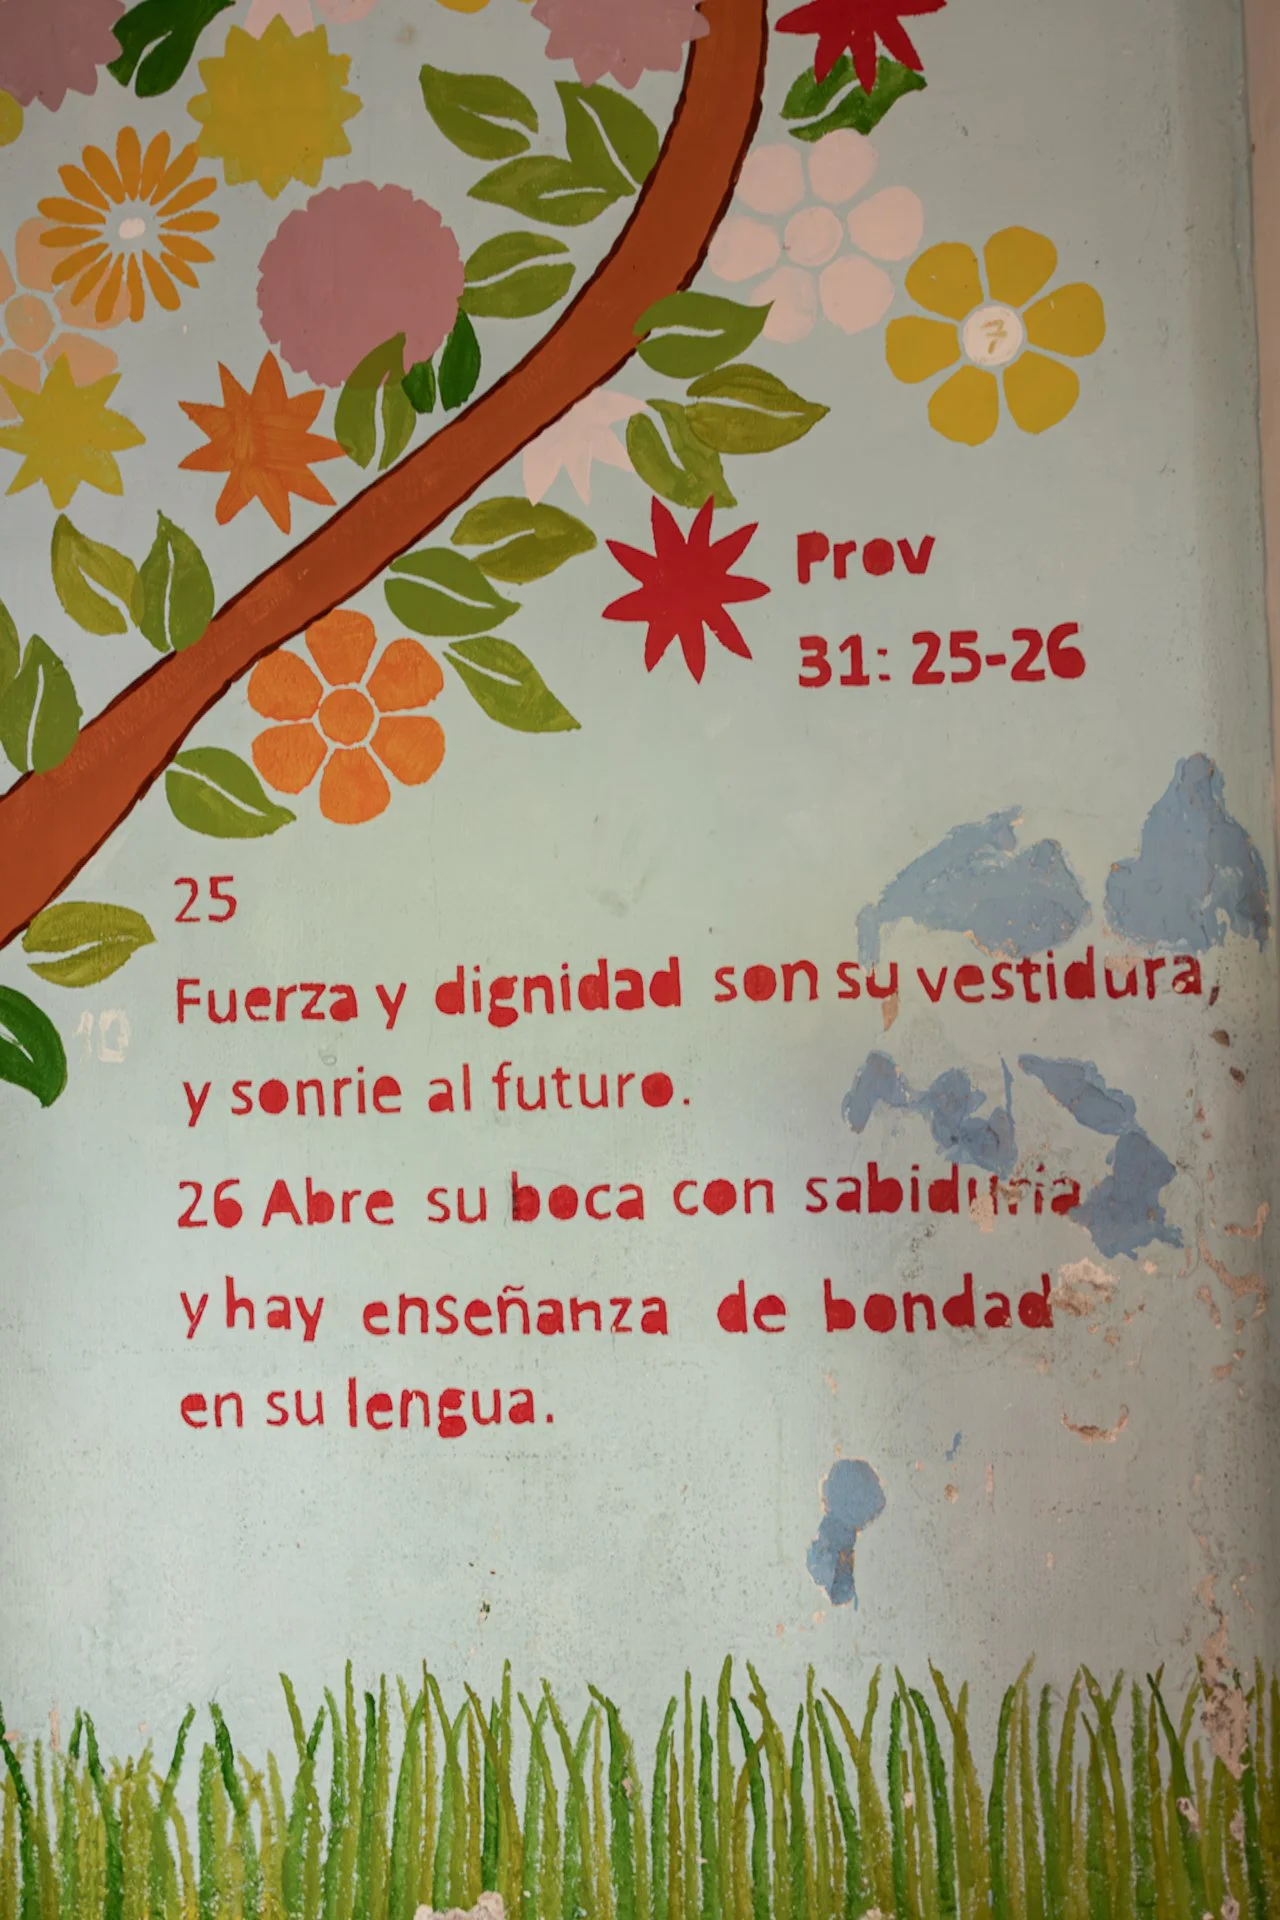 7
Prov
31: 25-26
25
Fuerza y dignidad son su vestidura,
y sonrie al futuro.
10
26 Abre su boca con sabiduría
y hay enseñanza de bondad
en su lengua.